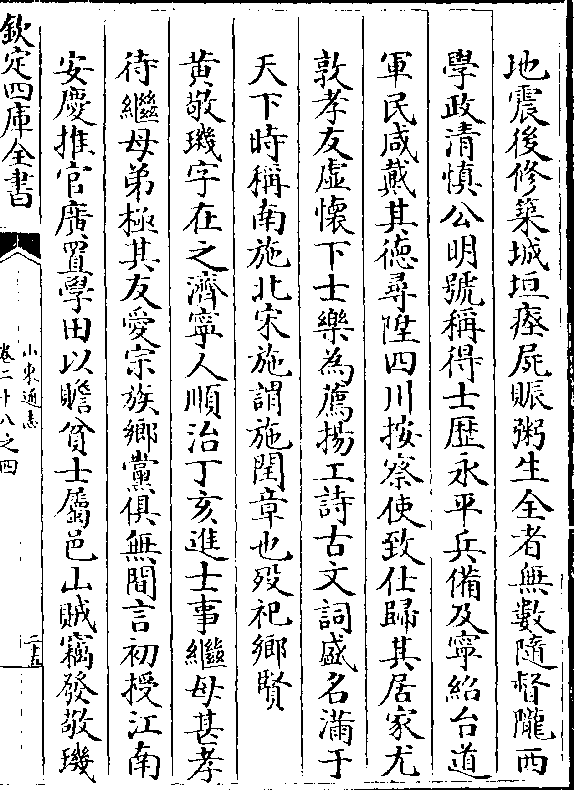 地震後修築城垣瘞屍賑粥生全者無數隨督隴西
學政清慎公明號稱得士歴永平兵備及寧紹台道
軍民咸戴其徳尋陞四川按察使致仕歸其居家尤
敦孝友虚懷下士樂為薦揚工詩古文詞盛名滿于
天下時稱南施北宋施謂施閏章也殁祀鄉賢
黄敬璣字在之濟寧人順治丁亥進士事繼母甚孝
待繼母弟極其友愛宗族鄉黨俱無間言初授江南
安慶推官廣置學田以贍貧士屬邑山賊竊發敬璣
欽定四庫全書
山東通志
卷二十八之四
二十五